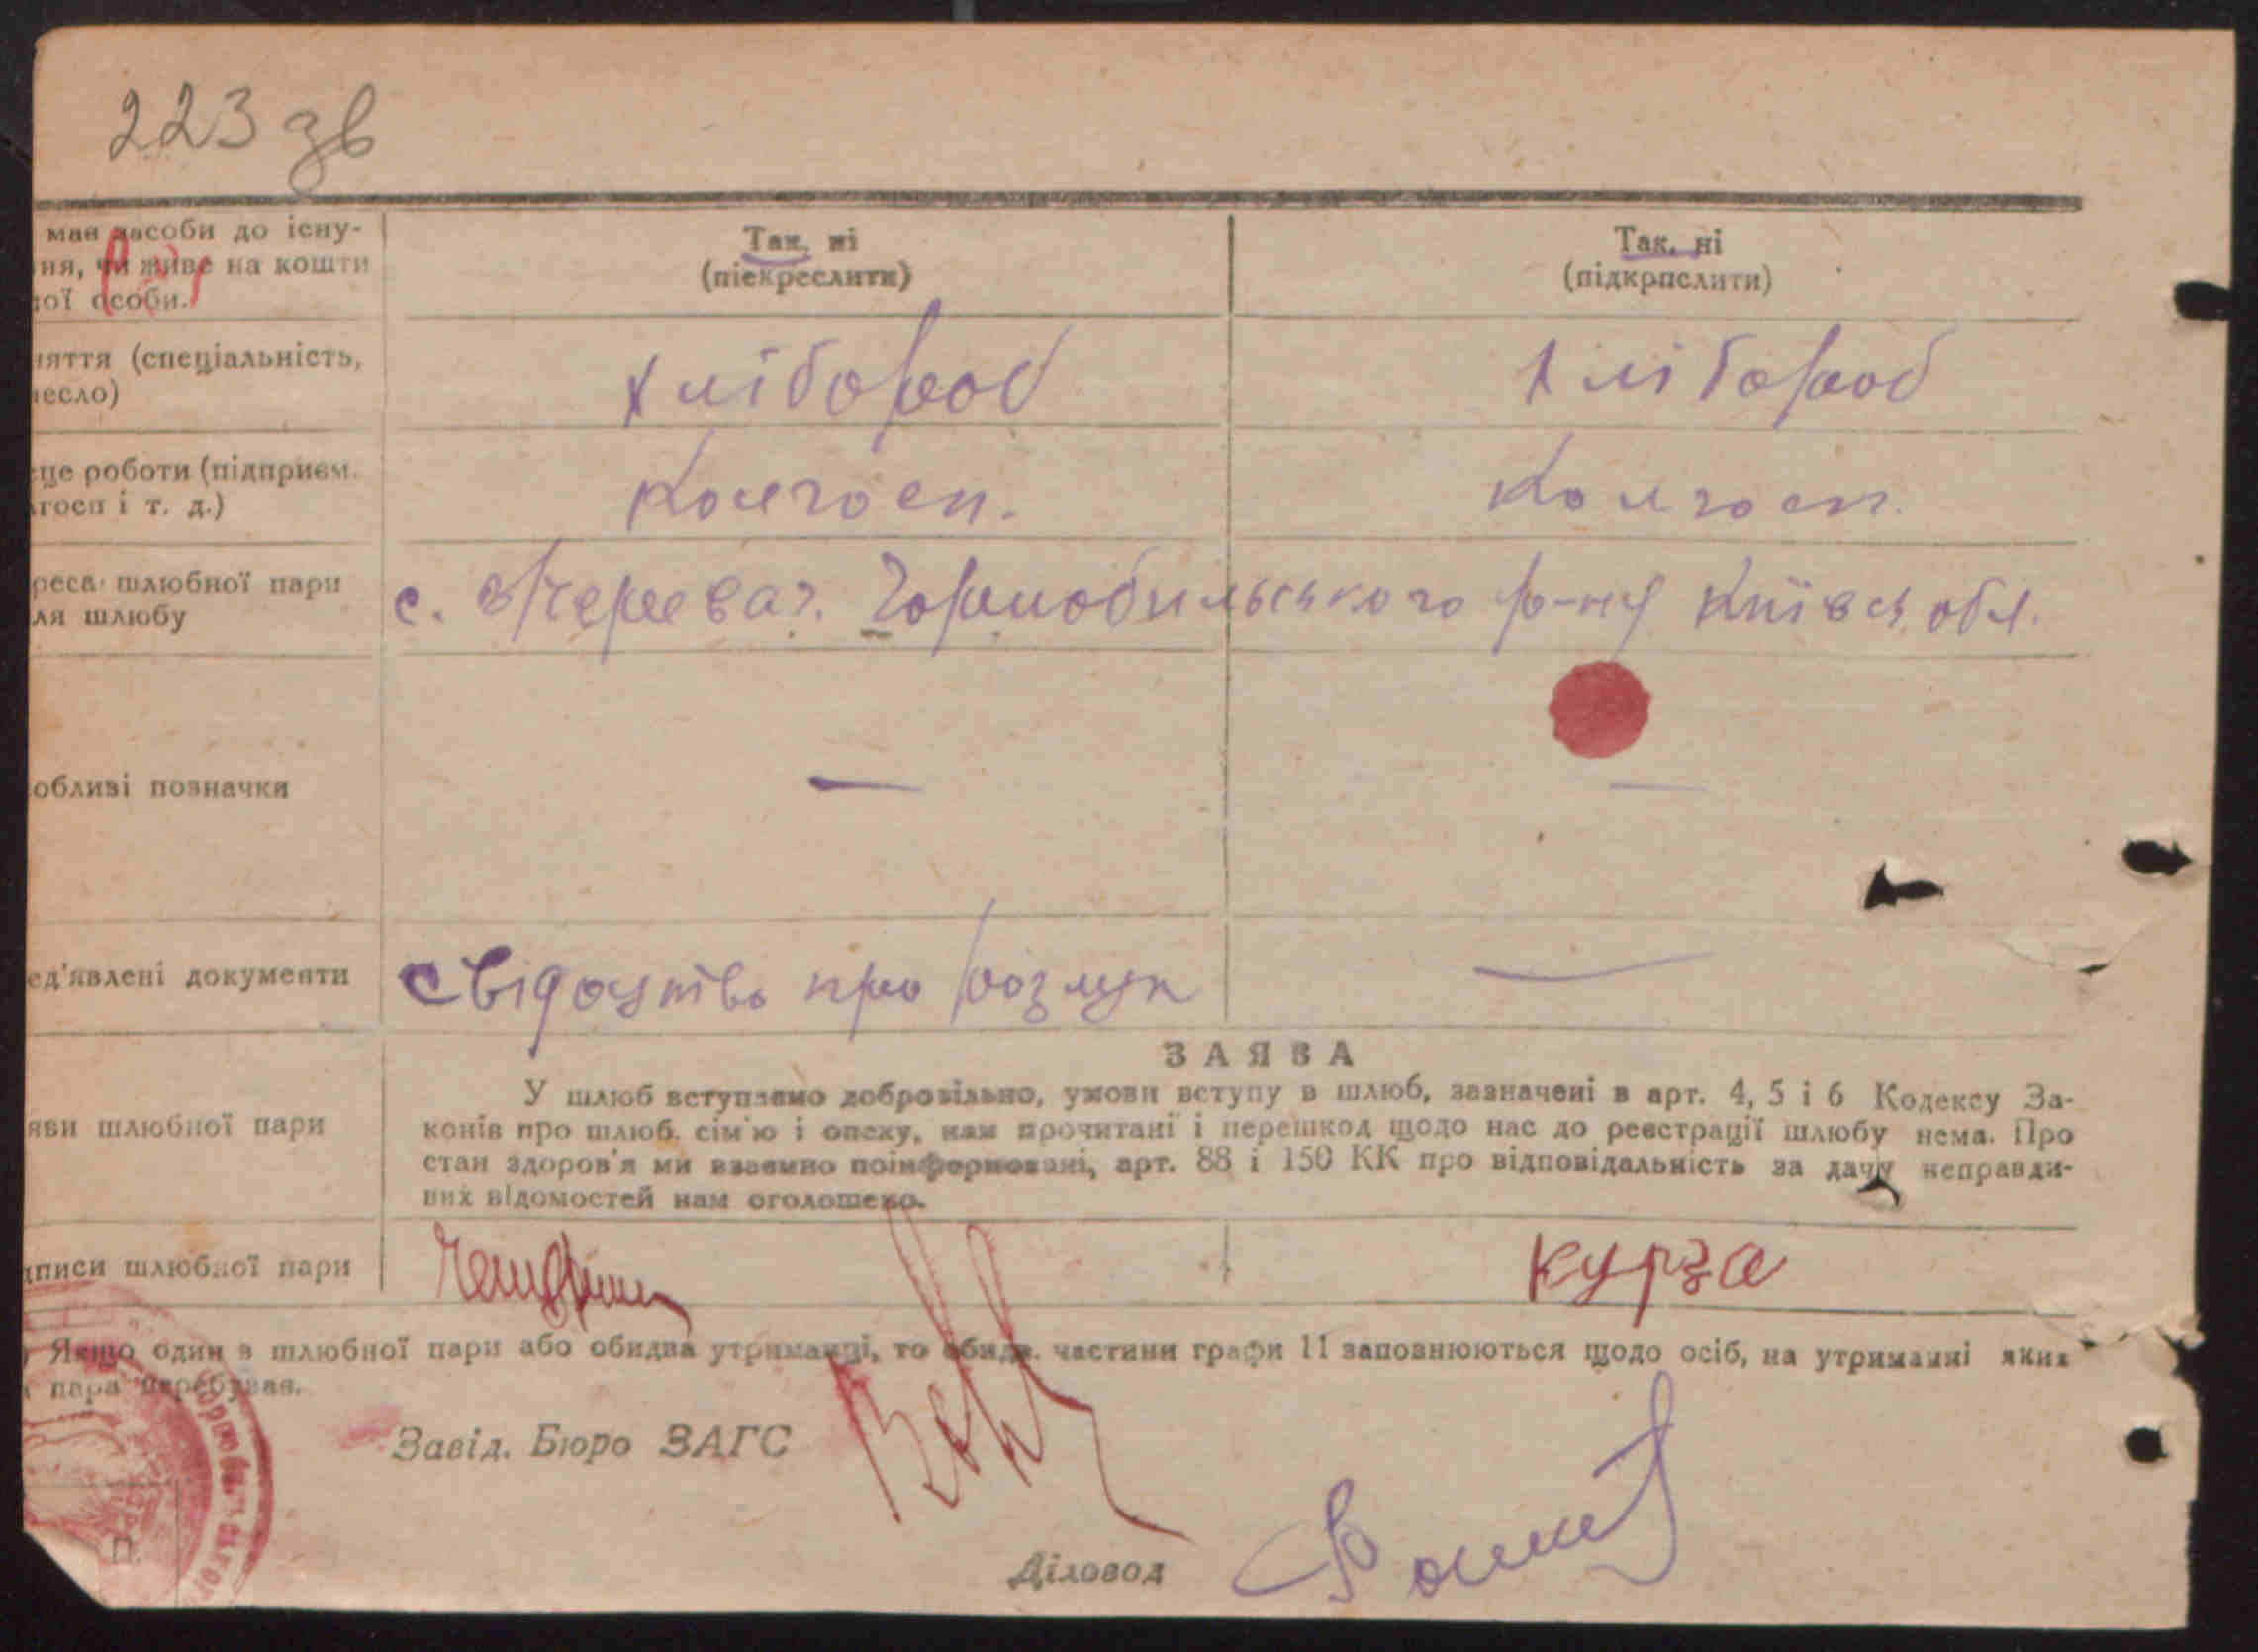 223 зв
має засоби до існу-
ня, чи живе на кошти
ої особи.
Так, ні
(піекреслити)
Так, ні
(підкрпслити)
няття (спеціальність,
есло)
хлібороб
хлібороб
це роботи (підприєм.
госп і т. д.)
Колгосп.
Колгосп.
реса шлюбної пари
ля шлюбу
с. Черевач. Чорнобильського р-ну Київськ обл.
обливі позначки
—
—
ед'явлені документи
свідоцтво про розлук
—
ЗАЯВА
яви шлюбної пари
У шлюб вступаємо добровільно, умови вступу в шлюб, зазначені в арт. 4, 5 і 6 Кодексу За-
конів про шлюб. сім'ю і опеку, нам прочитані і перешкод щодо нас до реєстрації шлюбу нема. Про
стан здоров'я ми взаємно поінформовані, арт. 88 і 150 КК про відповідальність за дачу неправди-
вих відомостей нам оголошено.
дписи шлюбної пари
курза
) Якщо один з шлюбної пари або обидва утриманці, то обидв. частини графи 11 заповнюються щодо осіб, на утриманні яких
пара перебуває.
Завід. Бюро ЗАГС
П.
Діловод